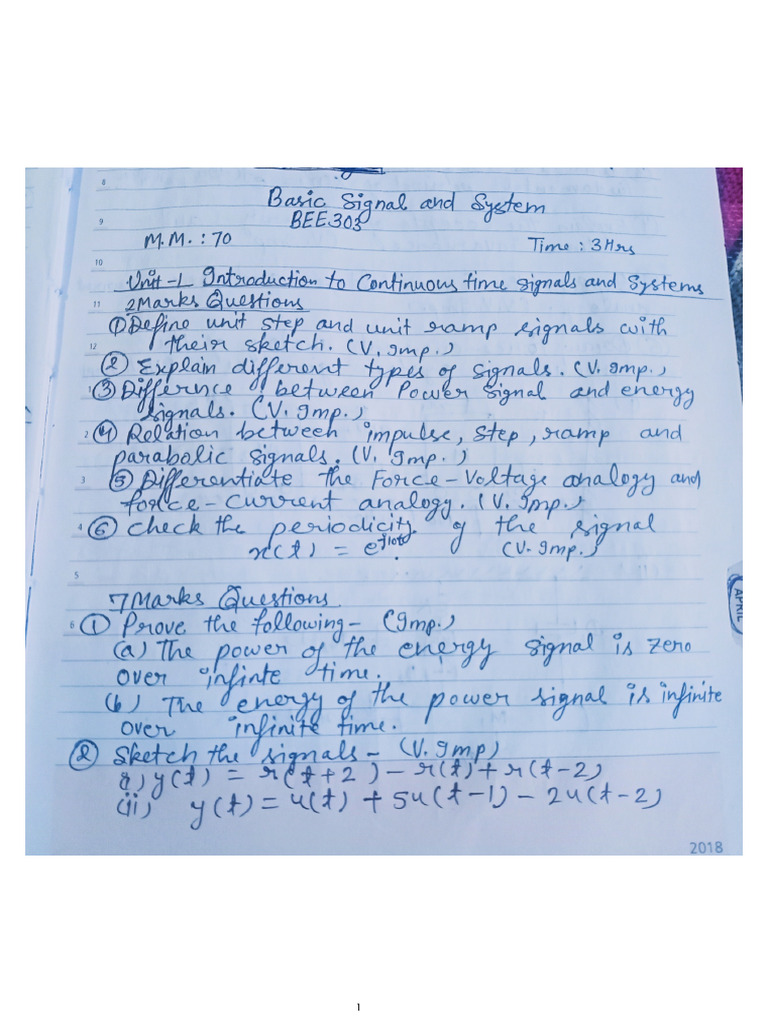 8
Basic Signal and System
9 BEE303
M.M. : 70 Time : 3 Hrs
10
Unit-1 Introduction to Continuous time signals and Systems
11 2 Marks Questions
① Define unit step and unit ramp signals with
12 their sketch. (V. Imp.)
② Explain different types of signals. (V. Imp.)
1 ③ Differnce between Power signal and energy
signals. (V. Imp.)
2 ④ Relation between impulse, step, ramp and
parabolic signals. (V. Imp.)
3 ⑤ Differentiate the Force-Voltage analogy and
force-current analogy. (V. Imp.)
4 ⑥ check the periodicity of the signal
x(t) = e^j10t. (V. Imp.)
5
7 Marks Questions
6 ① Prove the following - (Imp.)
(a) The power of the energy signal is zero
over infinte time.
(b) The energy of the power signal is infinite
over infinite time.
② Sketch the signals - (V. Imp)
i) y(t) = r(t+2) - r(t) + r(t-2)
(ii) y(t) = u(t) + 5u(t-1) - 2u(t-2)
APRIL
2018
1